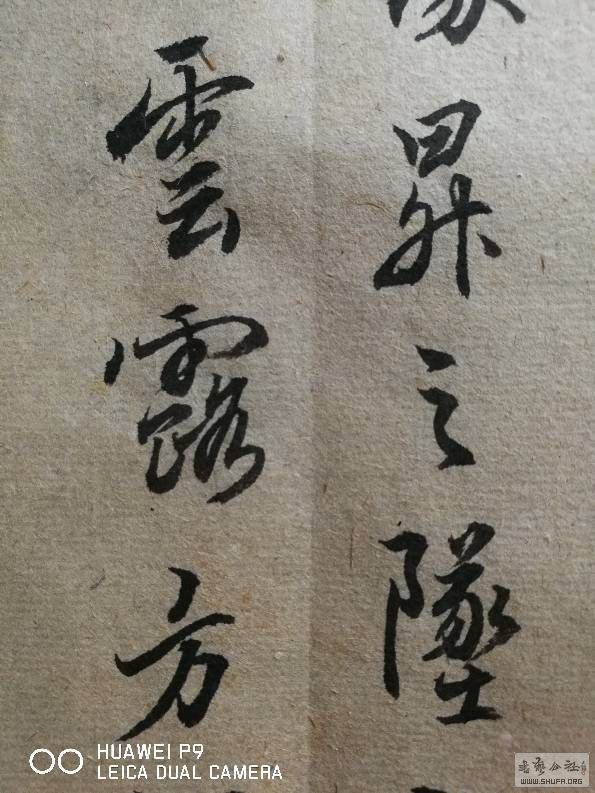 昇之墜
雲露方
HUAWEI P9
LEICA DUAL CAMERA
书艺公社
WWW.SHUFA.ORG